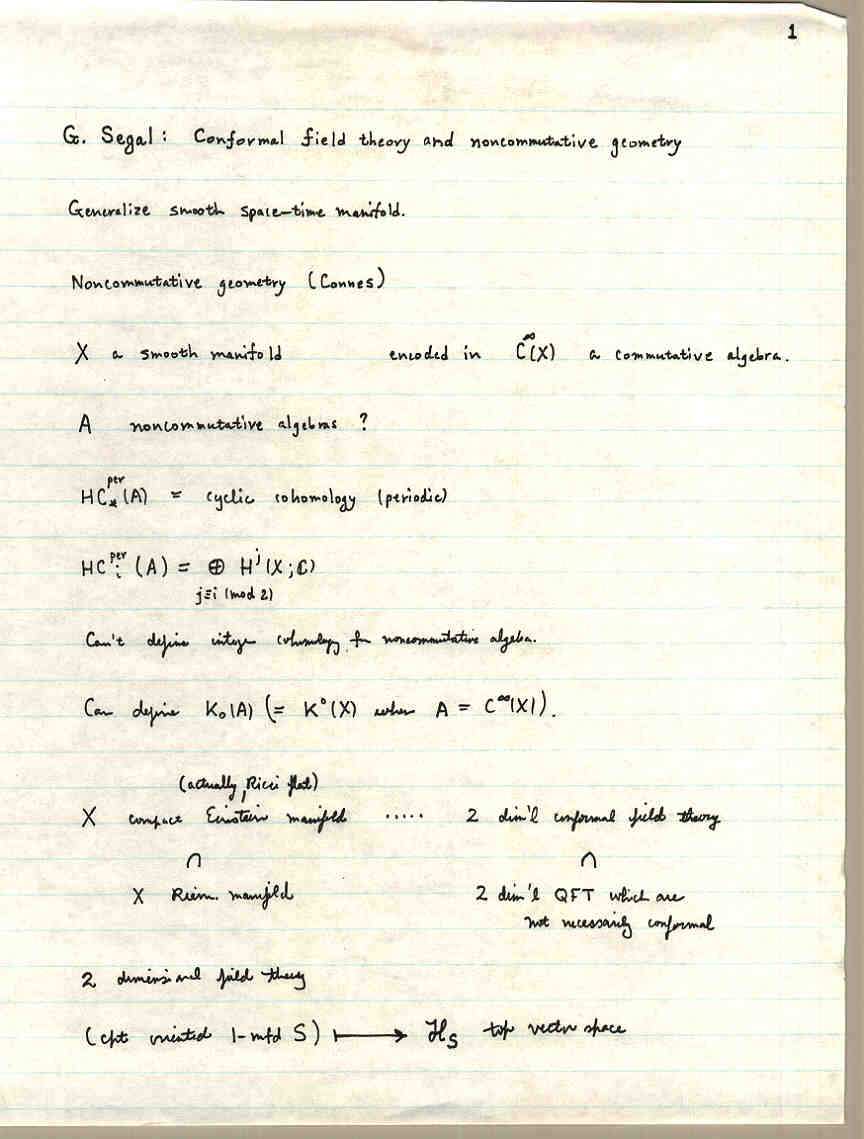 1
G. Segal: Conformal field theory and noncommutative geometry
Generalize smooth space-time manifold.
Noncommutative geometry (Connes)
X a smooth manifold encoded in C^∞(X) a commutative algebra.
A noncommutative algebras ?
HC_*^per(A) = cyclic cohomology (periodic)
HC_i^per(A) = ⊕ H^j(X;ℂ)
j≡i (mod 2)
Can't define integer cohomology for noncommutative algebra.
Can define K_0(A) (= K^0(X) when A = C^∞(X)).
(actually, Ricci flat)
X compact Einstein manifold ..... 2 dim'l conformal field theory
∩ ∩
X Riem. manifold 2 dim'l QFT which are
not necessarily conformal
2 dimensional field theory
(cpt oriented 1-mfd S) ⟼ ℋ_S top vector space